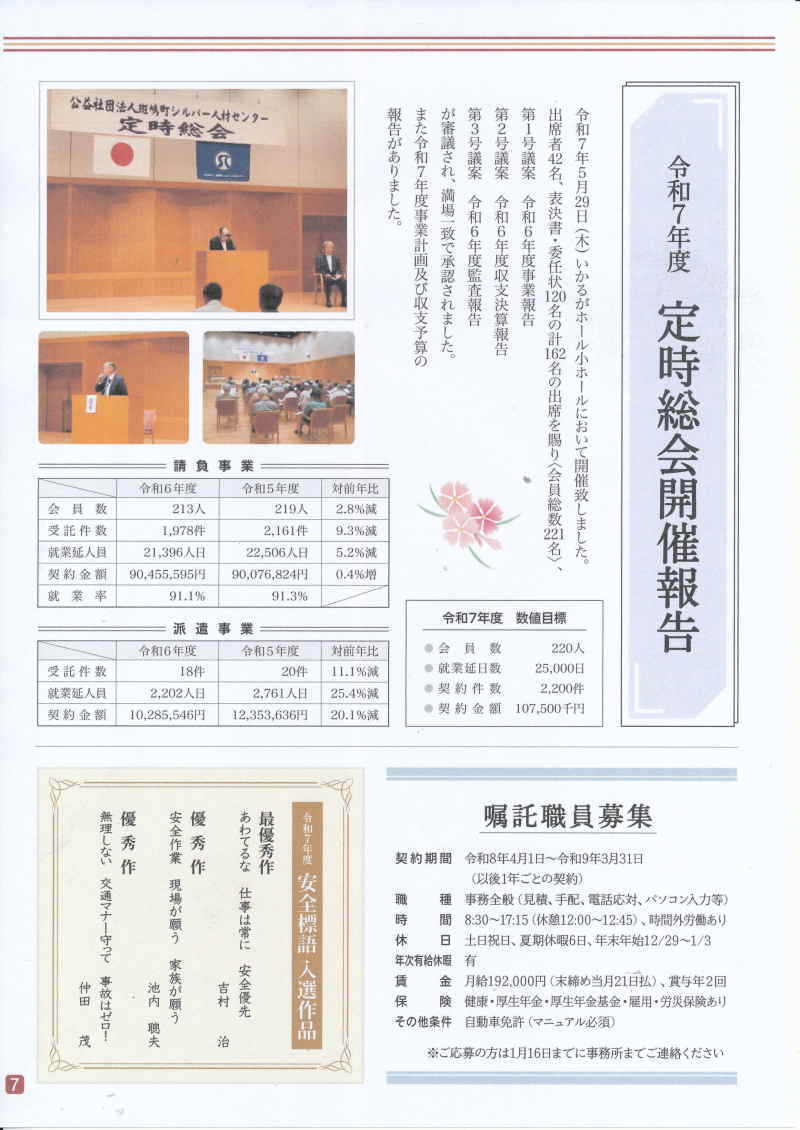 令和7年度　定時総会開催報告
令和7年5月29日（木）いかるがホール小ホールにおいて開催致しました。
出席者42名、表決書・委任状120名の計162名の出席を賜り〈会員総数221名〉、
第1号議案　令和6年度事業報告
第2号議案　令和6年度収支決算報告
第3号議案　令和6年度監査報告
が審議され、満場一致で承認されました。
また令和7年度事業計画及び収支予算の
報告がありました。
公益社団法人斑鳩町シルバー人材センター
定時総会
請負事業
令和6年度　令和5年度　対前年比
会員数　213人　219人　2.8%減
受託件数　1,978件　2,161件　9.3%減
就業延人員　21,396人日　22,506人日　5.2%減
契約金額　90,455,595円　90,076,824円　0.4%増
就業率　91.1%　91.3%
派遣事業
令和6年度　令和5年度　対前年比
受託件数　18件　20件　11.1%減
就業延人員　2,202人日　2,761人日　25.4%減
契約金額　10,285,546円　12,353,636円　20.1%減
令和7年度　数値目標
●会員数　220人
●就業延日数　25,000日
●契約件数　2,200件
●契約金額　107,500千円
令和7年度　安全標語 入選作品
最優秀作
あわてるな　仕事は常に　安全優先
吉村　治
優秀作
安全作業　現場が願う　家族が願う
池内　聰夫
優秀作
無理しない　交通マナー守って　事故はゼロ！
仲田　茂
嘱託職員募集
契約期間　令和8年4月1日～令和9年3月31日
（以後1年ごとの契約）
職種　事務全般（見積、手配、電話応対、パソコン入力等）
時間　8:30～17:15（休憩12:00～12:45）、時間外労働あり
休日　土日祝日、夏期休暇6日、年末年始12/29～1/3
年次有給休暇　有
賃金　月給192,000円（末締め当月21日払）、賞与年2回
保険　健康・厚生年金・厚生年金基金・雇用・労災保険あり
その他条件　自動車免許（マニュアル必須）
※ご応募の方は1月16日までに事務所までご連絡ください
7